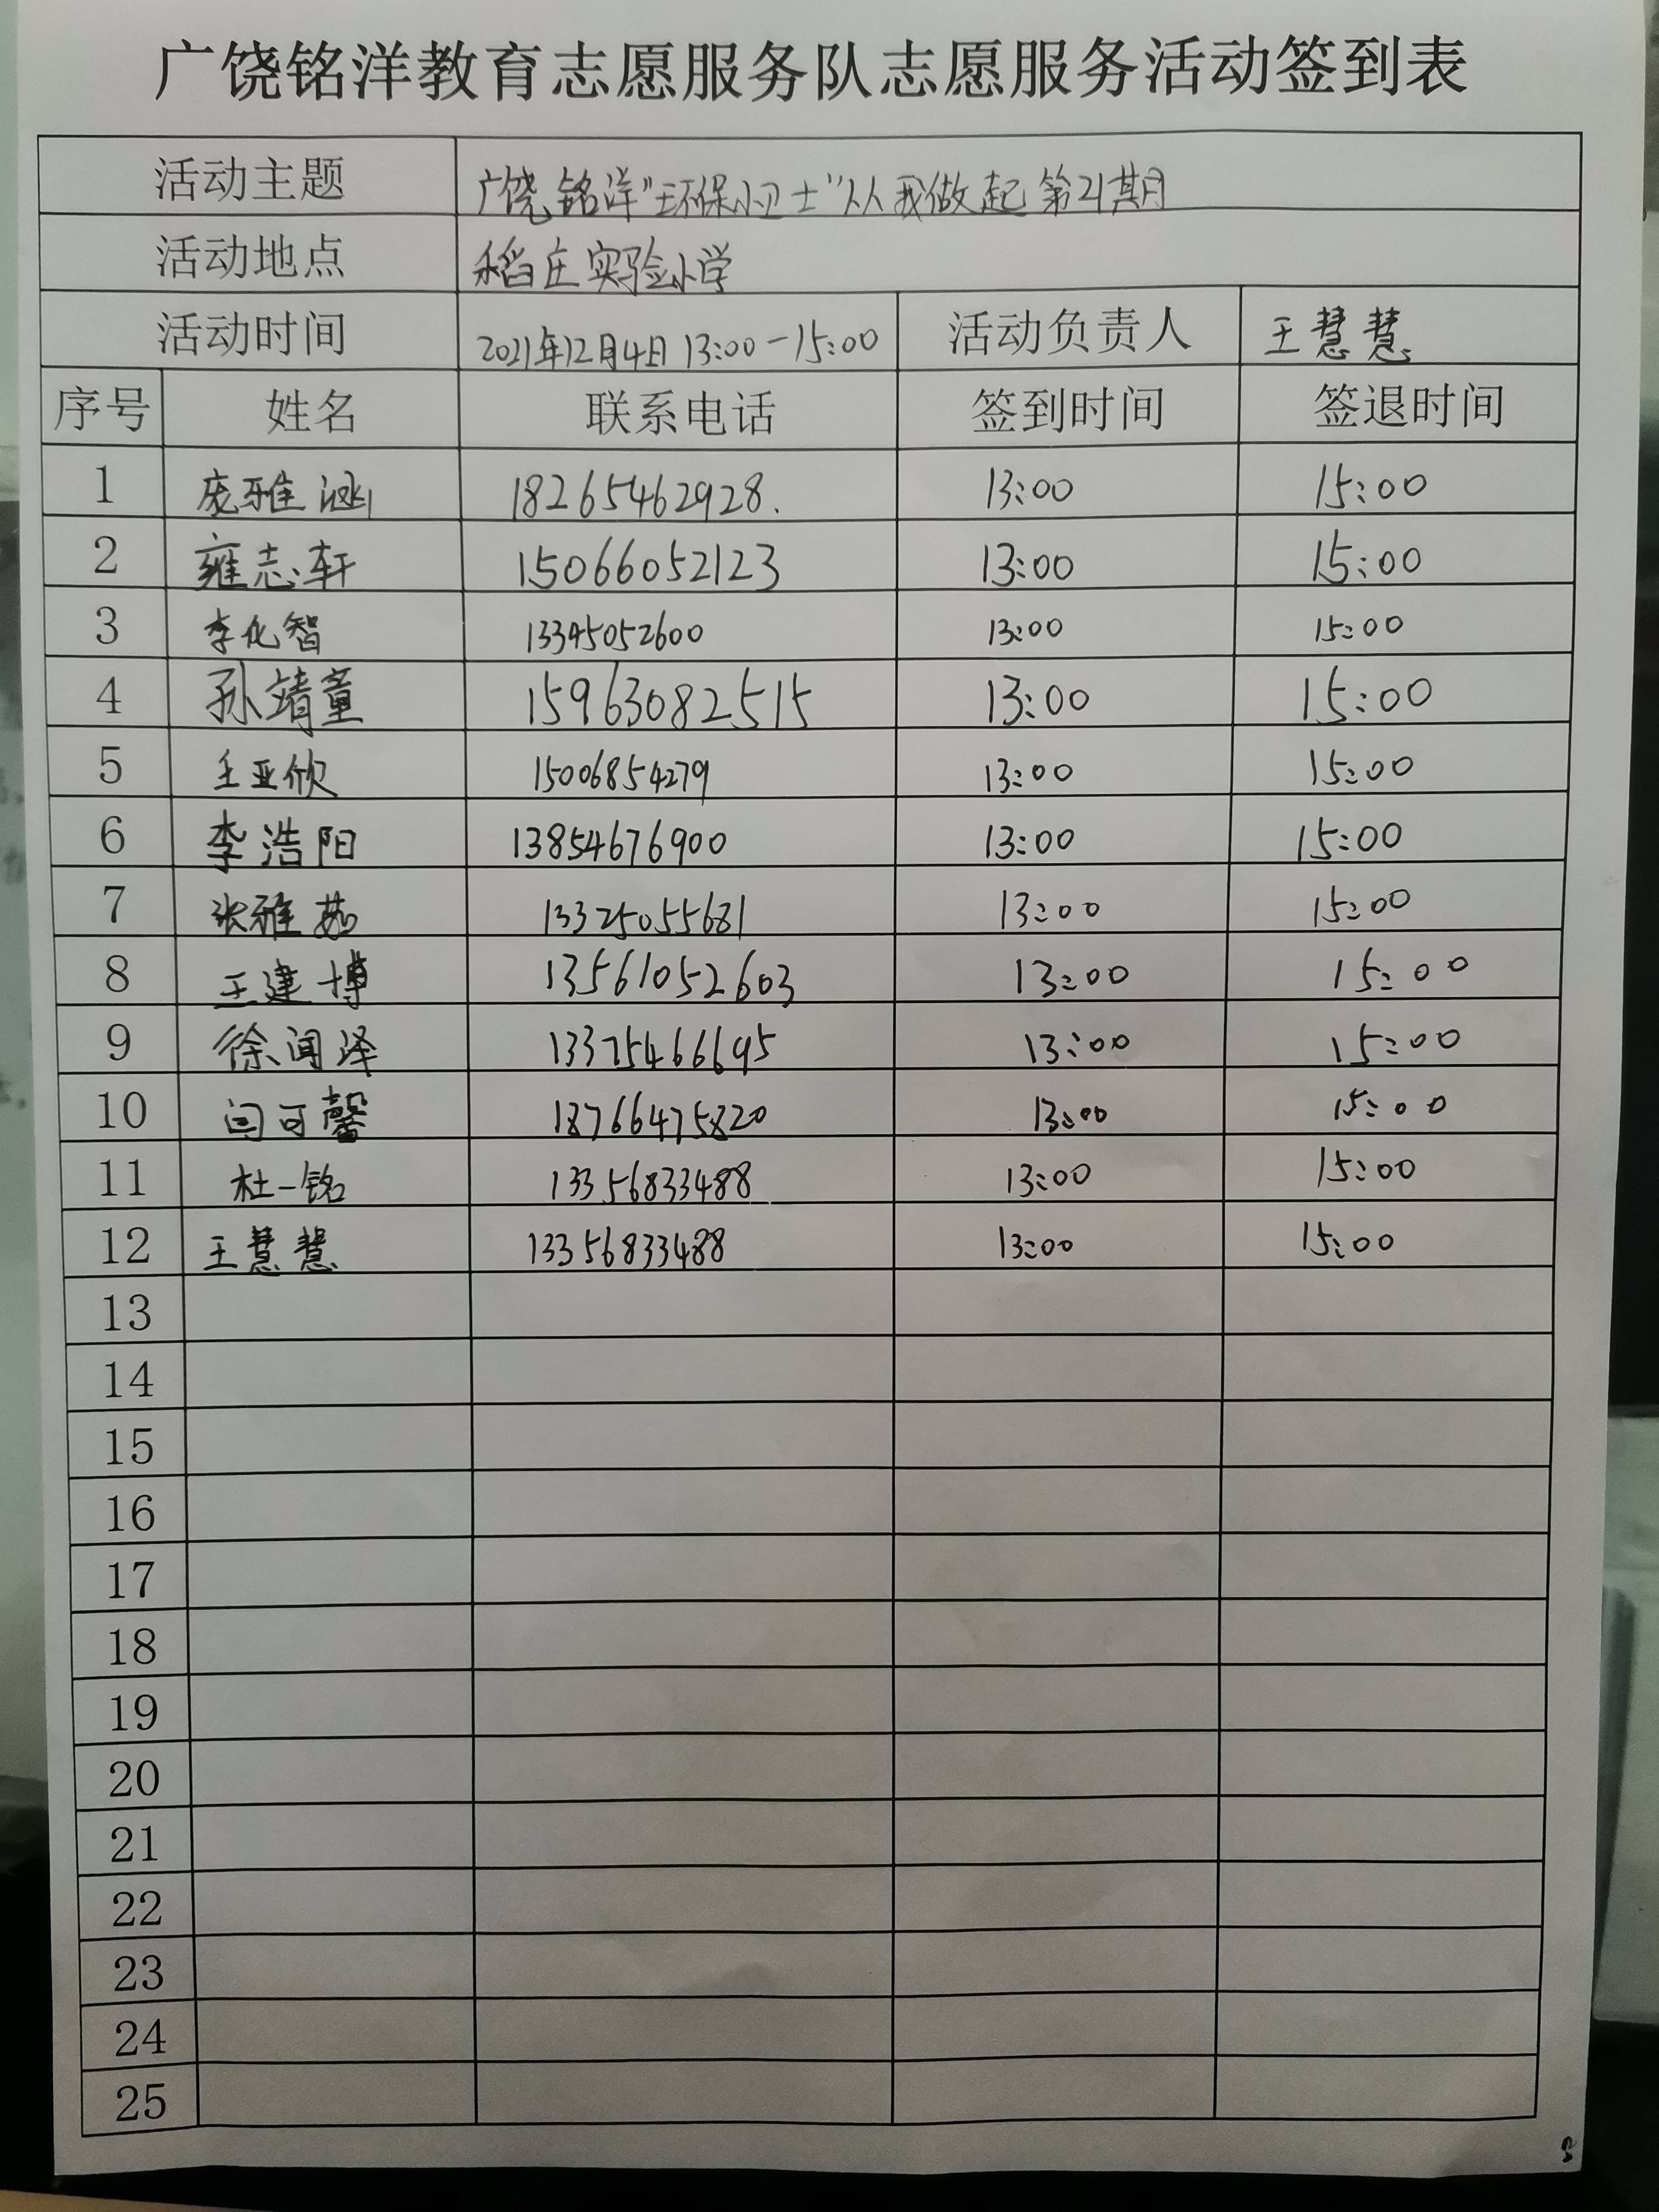 广饶铭洋教育志愿服务队志愿服务活动签到表
活动主题 广饶铭洋"环保小卫士"从我做起第21期
活动地点 稻庄实验小学
活动时间 2021年12月4日 13:00-15:00 活动负责人 王慧慧
序号 姓名 联系电话 签到时间 签退时间
1 庞雅涵 18265462928. 13:00 15:00
2 雍志轩 15066052123 13:00 15:00
3 李化智 13345052600 13:00 15:00
4 孙靖童 15963082515 13:00 15:00
5 王亚欣 15006854279 13:00 15:00
6 李浩阳 13854676900 13:00 15:00
7 张雅茹 13325055681 13:00 15:00
8 王建博 13561052603 13:00 15:00
9 徐闻泽 13375466695 13:00 15:00
10 闫可馨 18766475820 13:00 15:00
11 杜一铭 13356833488 13:00 15:00
12 王慧慧 13356833488 13:00 15:00
13
14
15
16
17
18
19
20
21
22
23
24
25